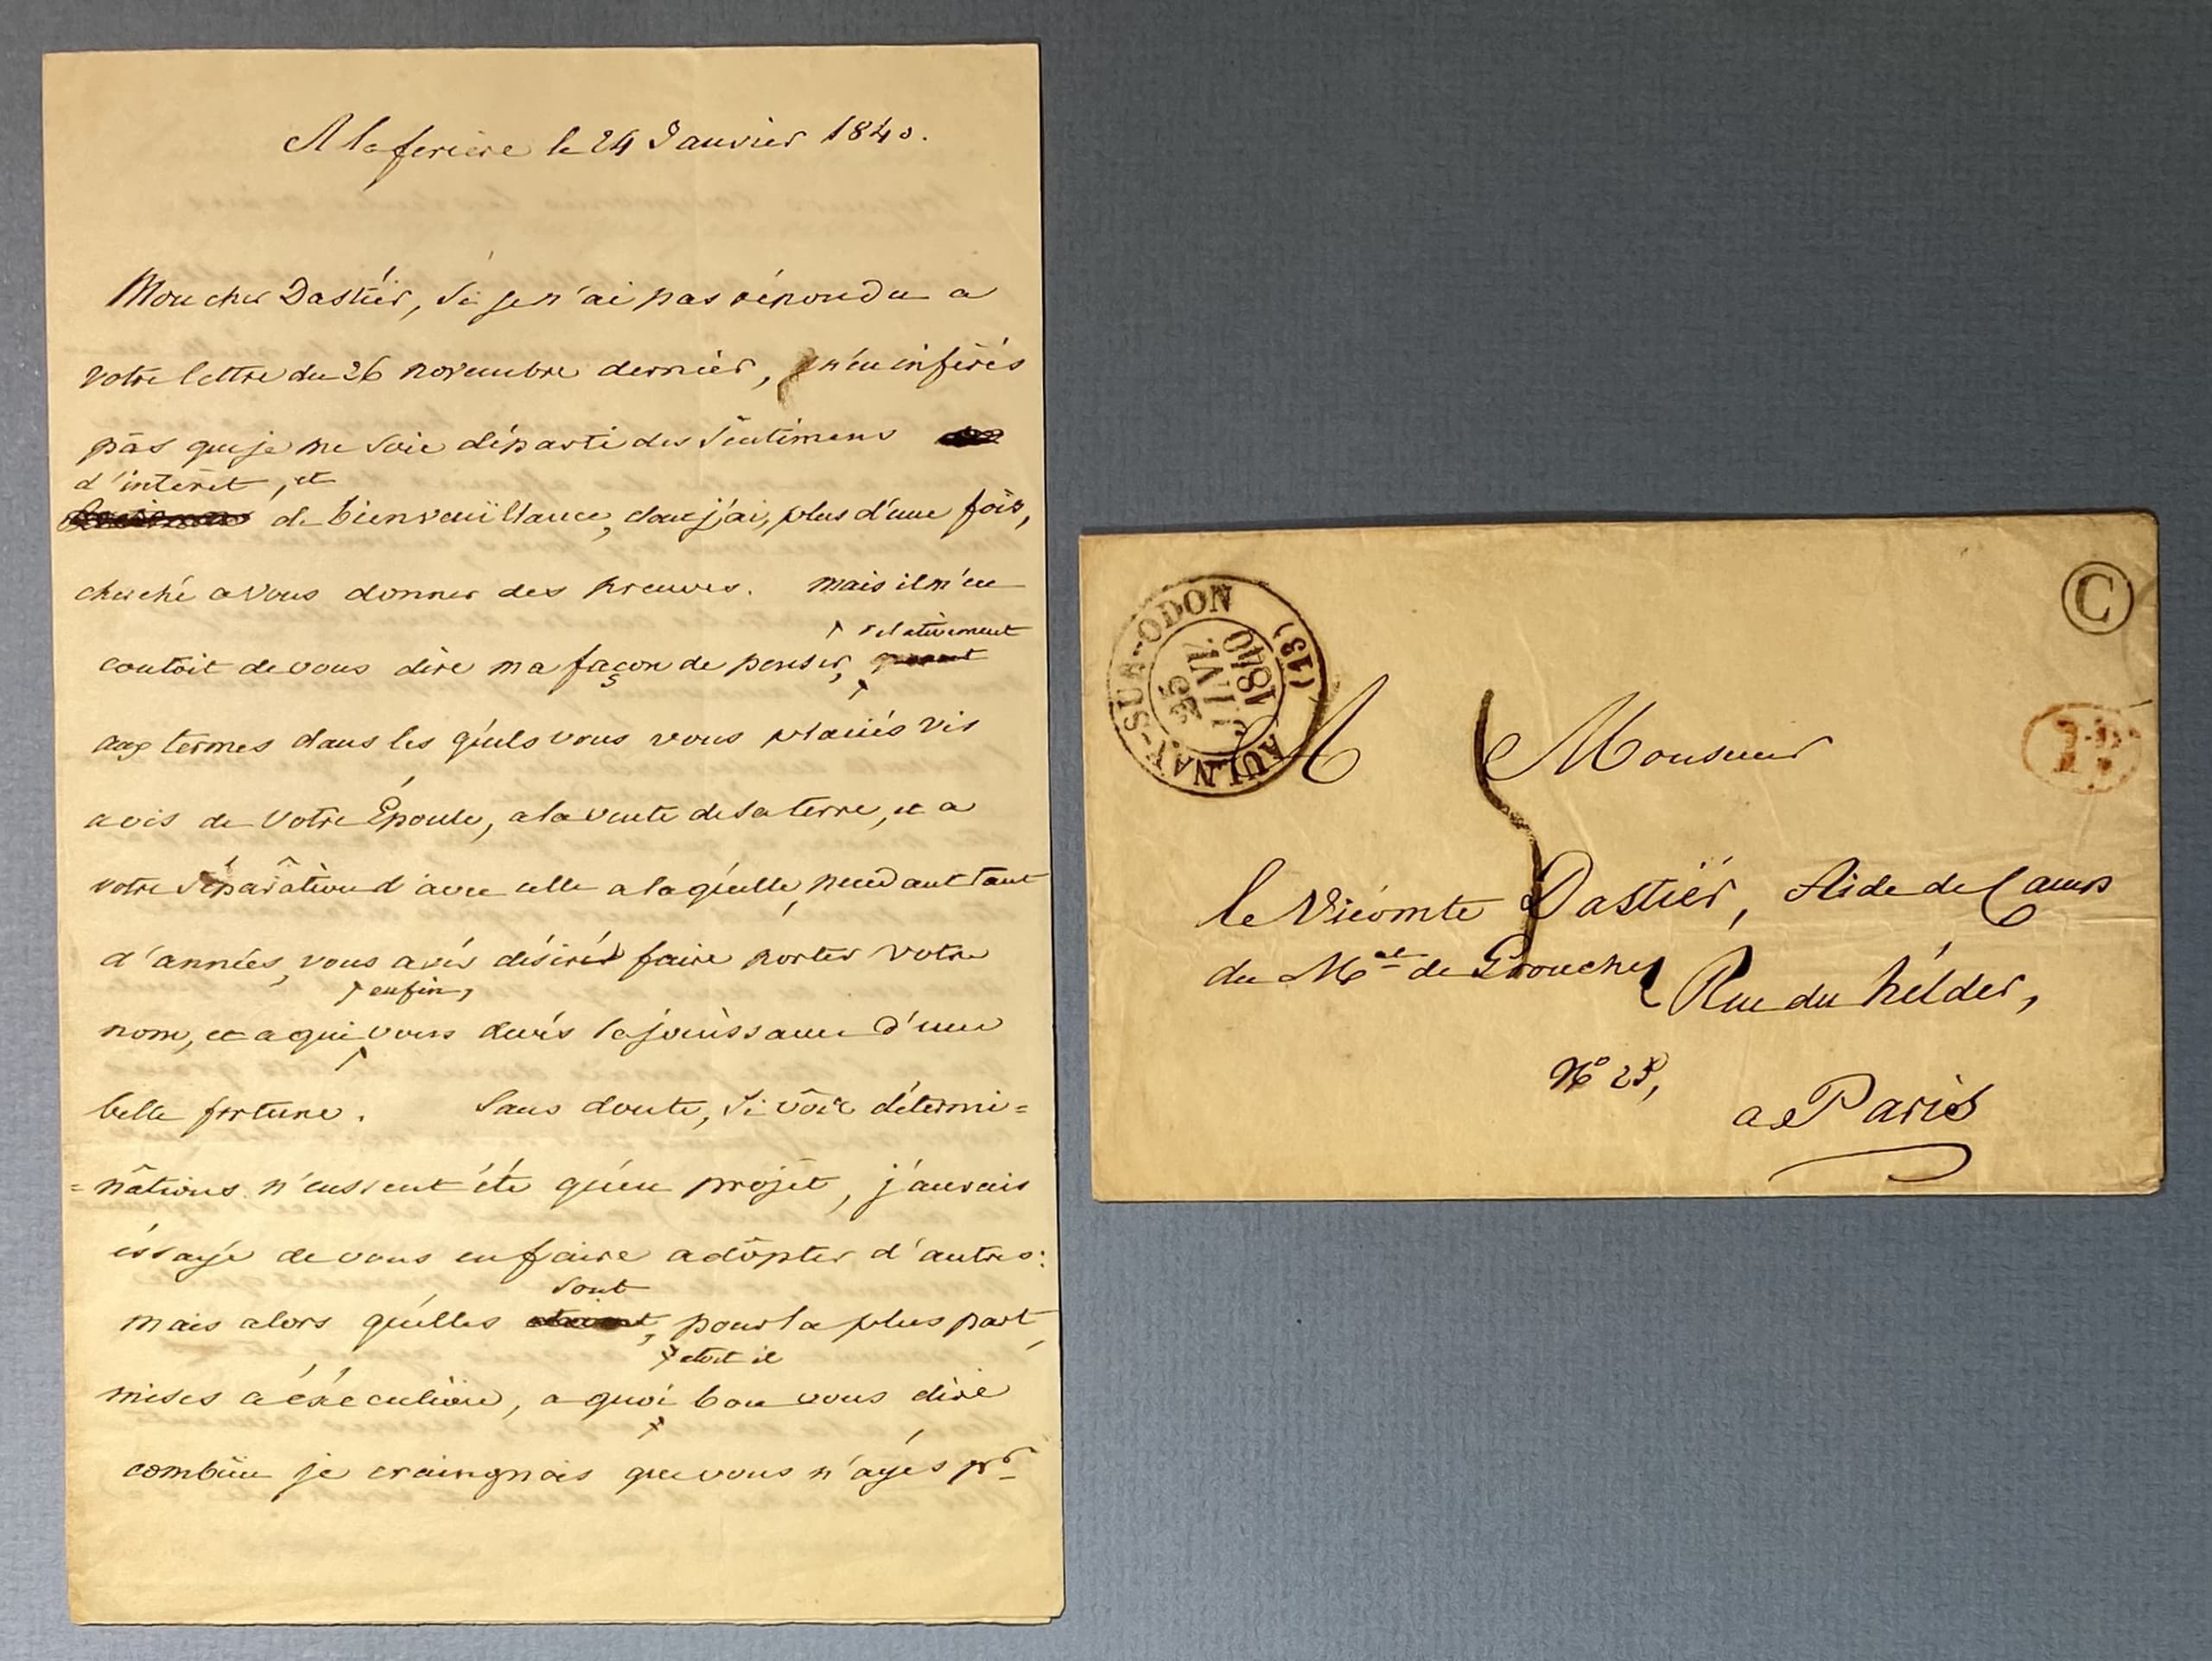 A laferiere le 24 Janvier 1840.
Mon cher Dastiér, Si je n'ai pas répondu a
votre lettre du 26 novembre dernier, n'en inférés
pas que je me soie départi des Sentimens
d'intérêt, et
de bienveuïllance, dont j'ai, plus d'une fois,
cherché a vous donner des preuves. mais il m'en
relativement
coutoit de vous dire ma façon de penser,
aux termes dans les quéls vous vous placiés vis
avis de votre Épouse, a la vente de sa terre, et a
votre séparâtion d'avec celle a laquélle, pendant tant
d'années, vous aviés désiré faire porter votre
enfin,
nom, et a qui vous deviés la jouissance d'une
belle fortune. Sans doute, Si vôs détermi=
=nâtions n'eussent été qu'en projet, j'aurais
éssayé de vous en faire adôpter d'autres:
sont
mais alors qu'elles étaient, pour la plus part,
etoit il
mises a éxécution, a quoi bon vous dire
combien je craingnois que vous n'ayés pr
AULNAY-SUR-ODON (13)
25 JANV. 1840
C
1D
A Monsieur
5
le Vicomte Dastiér, Aide de Camp
du Mal de Grouchy Rue du hélder,
N° 25,
a Paris